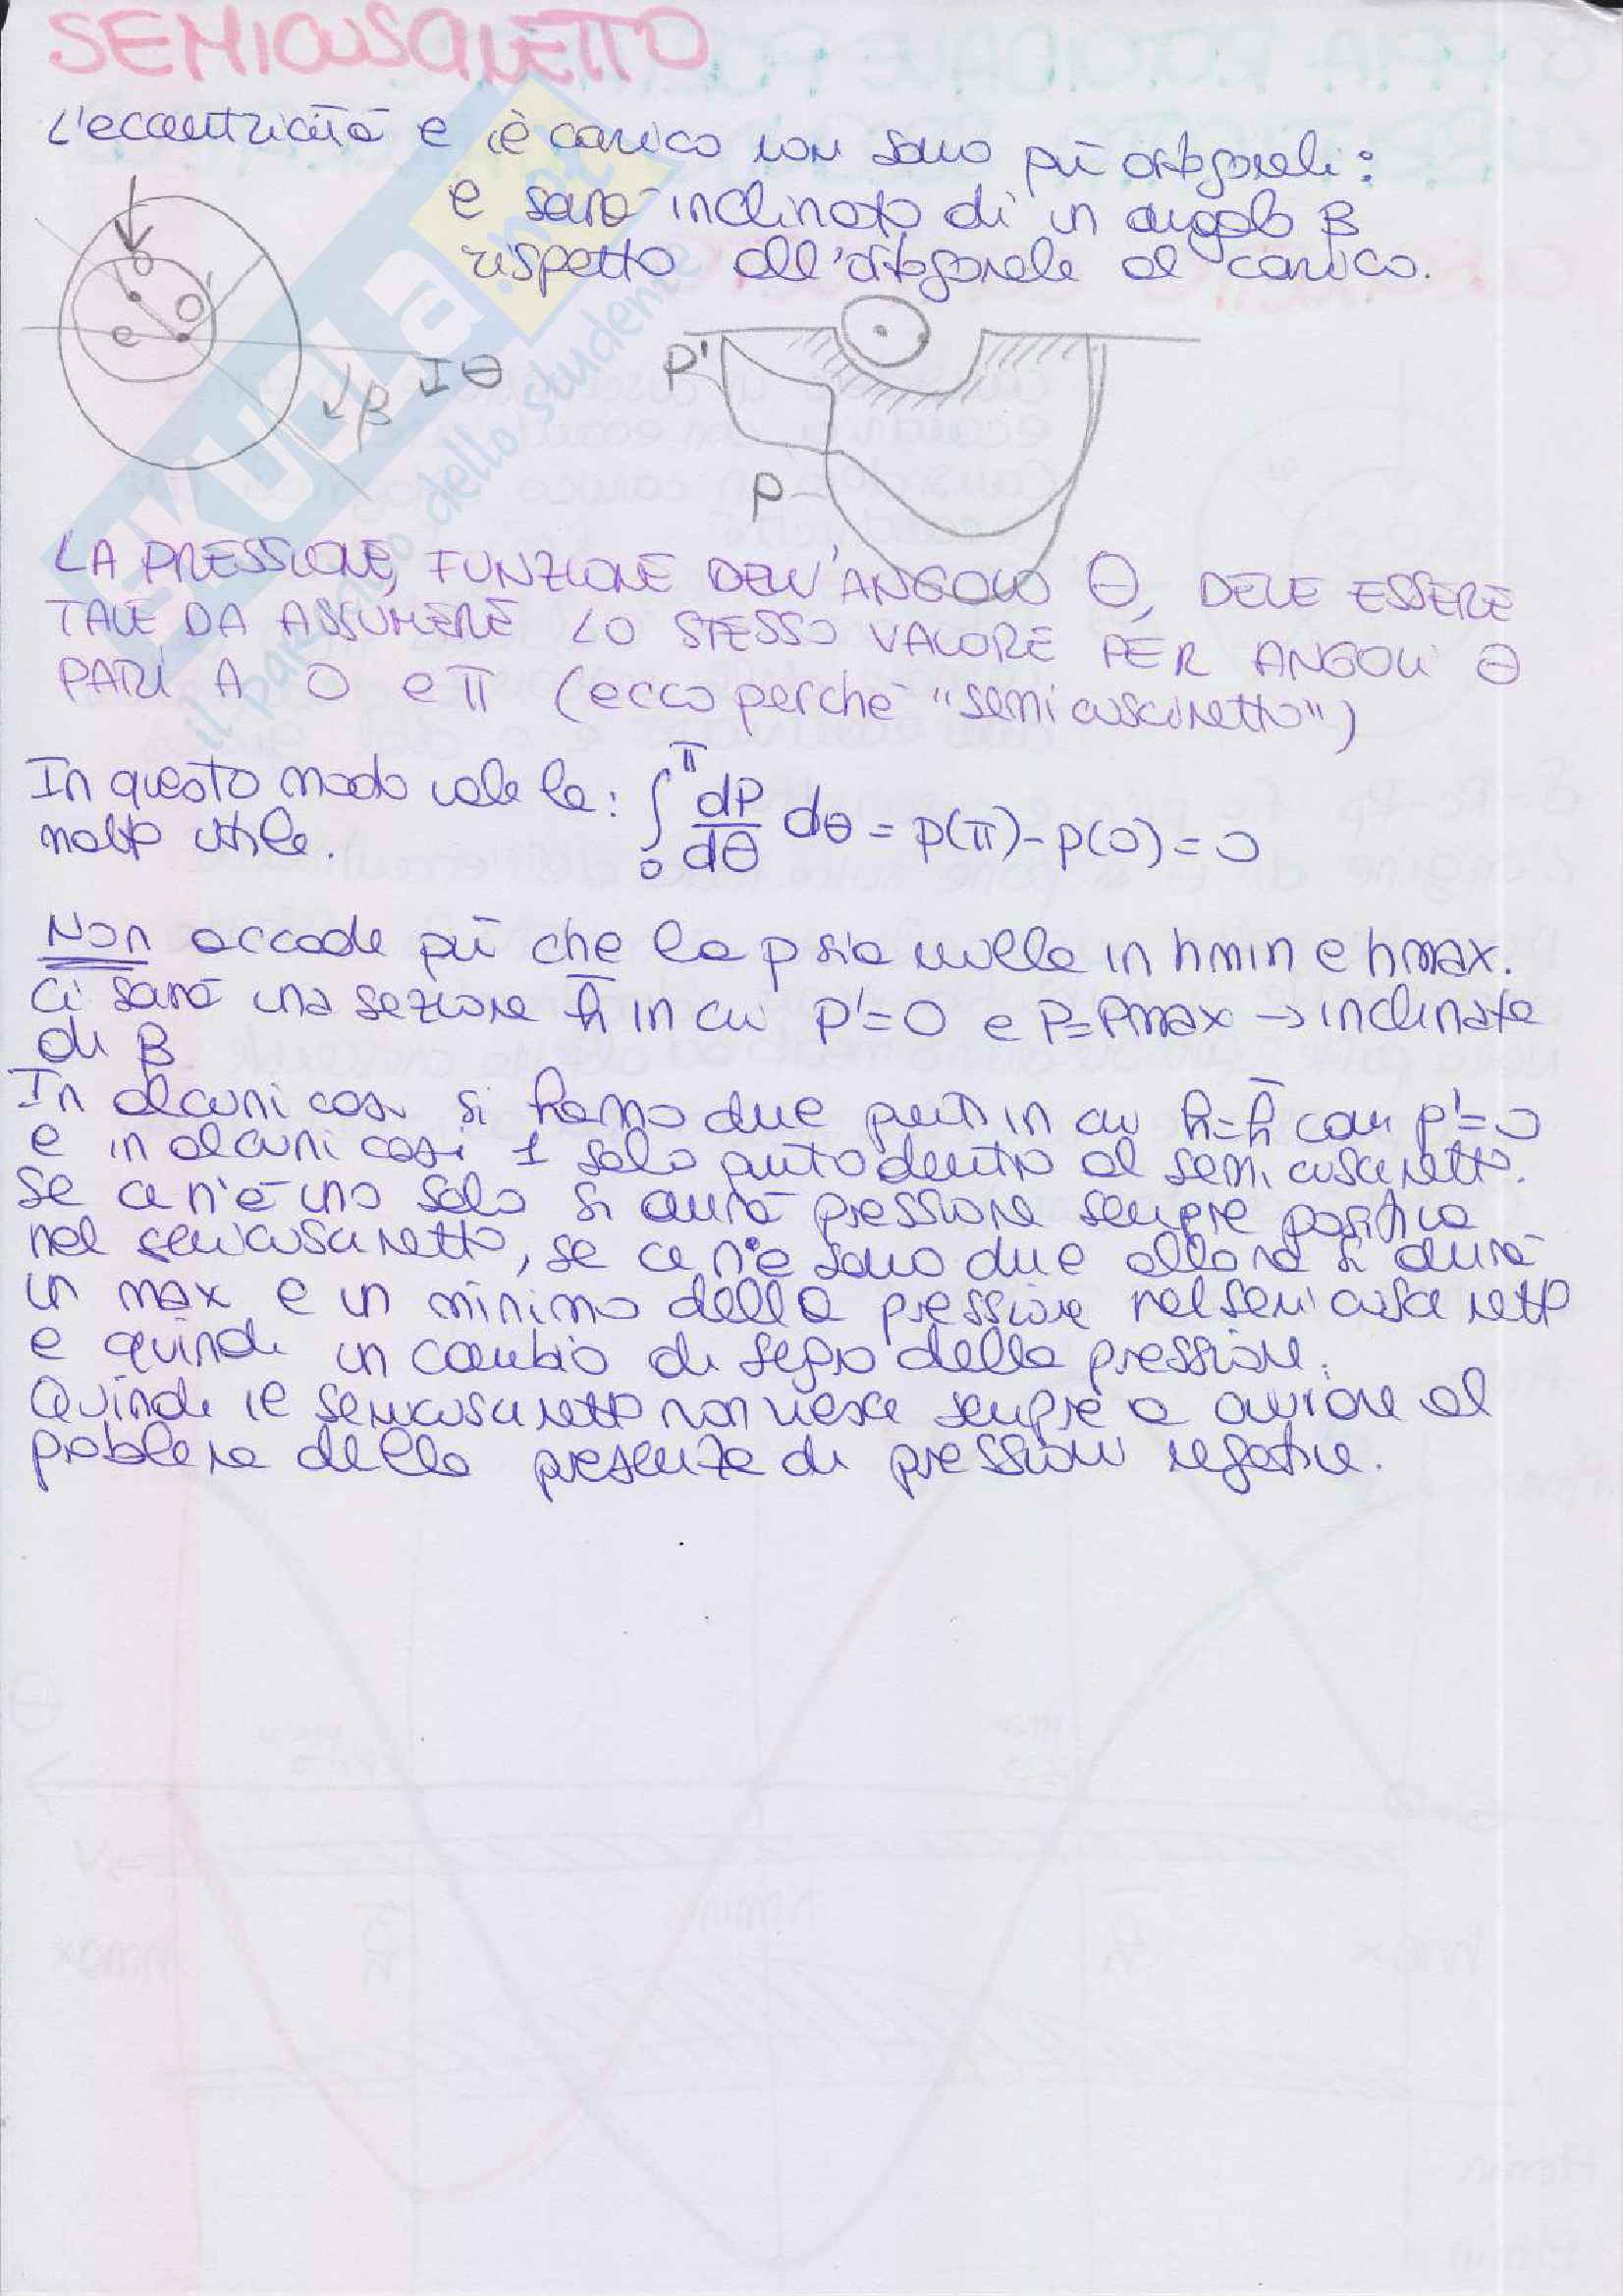 SEMICUSCINETTO
L'eccentricità e il carico non sono più ortogonali:
e sarà inclinato di un angolo β
rispetto all'ortogonale al carico.
O
O'
e
θ
β
P'
P
LA PRESSIONE, FUNZIONE DELL'ANGOLO θ, DEVE ESSERE
TALE DA ASSUMERE LO STESSO VALORE PER ANGOLI θ
PARI A 0 e π (ecco perché "semicuscinetto")
In questo modo vale la: ∫₀^π dP/dθ dθ = p(π) - p(0) = 0
molto utile.
Non accade più che la p sia nulla in hmin e hmax.
Ci sarà una sezione h̄ in cui P'=0 e P=Pmax → inclinata
di β
In alcuni casi si hanno due punti in cui h=h̄ con p'=0
e in alcuni casi 1 solo punto dentro al semicuscinetto.
Se ce n'è uno solo si avrà pressione sempre positiva
nel semicuscinetto, se ce n'e sono due allora si avrà
un max e un minimo della pressione nel semicuscinetto
e quindi un cambio di segno della pressione.
Quindi il semicuscinetto non riesce sempre a ovviare al
problema della presenza di pressioni negative.
SKUOLA.net
il paradiso dello studente